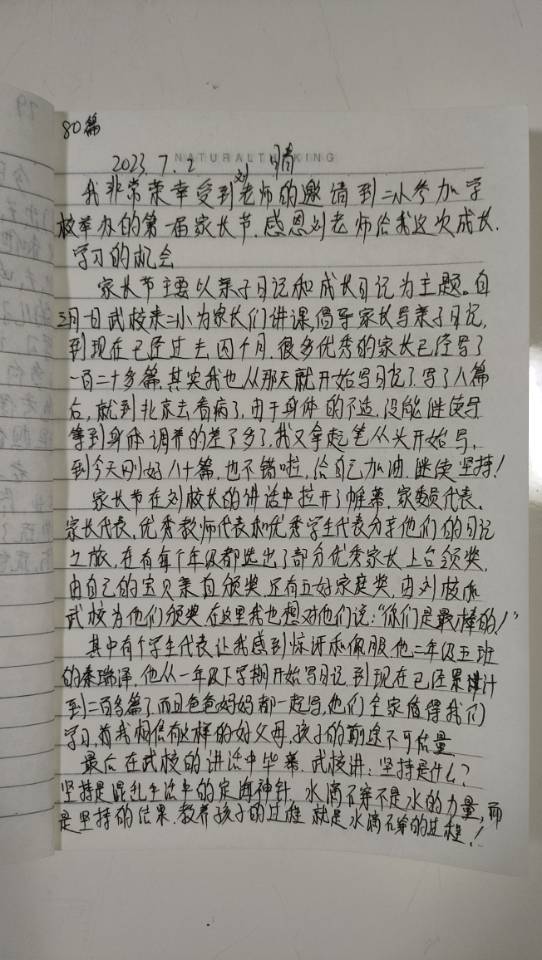 80篇
NATURALTHINKING
2023.7.2 晴
我非常荣幸受到刘老师的邀请到二小参加学
校举办的第一届家长节.感恩刘老师给我这次成长.
学习的机会
家长节主要以亲子日记和成长日记为主题。自
三月一日武校来二小为家长们讲课,倡导家长写亲子日记,
到现在已经过去四个月.很多优秀的家长已经写了
一百二十多篇.其实我也从那天就开始写日记了.写了八篇
后,就到北京去看病了,由于身体的不适,没能继续写
等到身体调养的差不多了.我又拿起笔从头开始写,
到今天刚好八十篇.也不错啦,给自己加油.继续坚持!
家长节在刘校长的讲话中拉开了帷幕.家委员代表.
家长代表.优秀教师代表和优秀学生代表分享他们的日记
之旅.在有每个年级都选出了部分优秀家长上台颁奖.
由自己的宝贝亲自颁奖.还有五好家庭奖,由刘校和
武校为他们颁奖.在这里我也想对他们说:"你们是最棒的!"
其中有个学生代表让我感到惊讶和佩服.他二年级五班
的秦瑞泽.他从一年级下学期开始写日记到现在已经累计
到二百多篇了.而且爸爸妈妈都一起写,他们全家值得我们
学习.我相信有这样的好父母,孩子的前途不可估量
最后在武校的讲话中毕幕.武校讲:坚持是什么?
坚持是混乱生活中的定海神针.水滴石穿不是水的力量,而
是坚持的结果.教养孩子的过程 就是水滴石穿的过程!